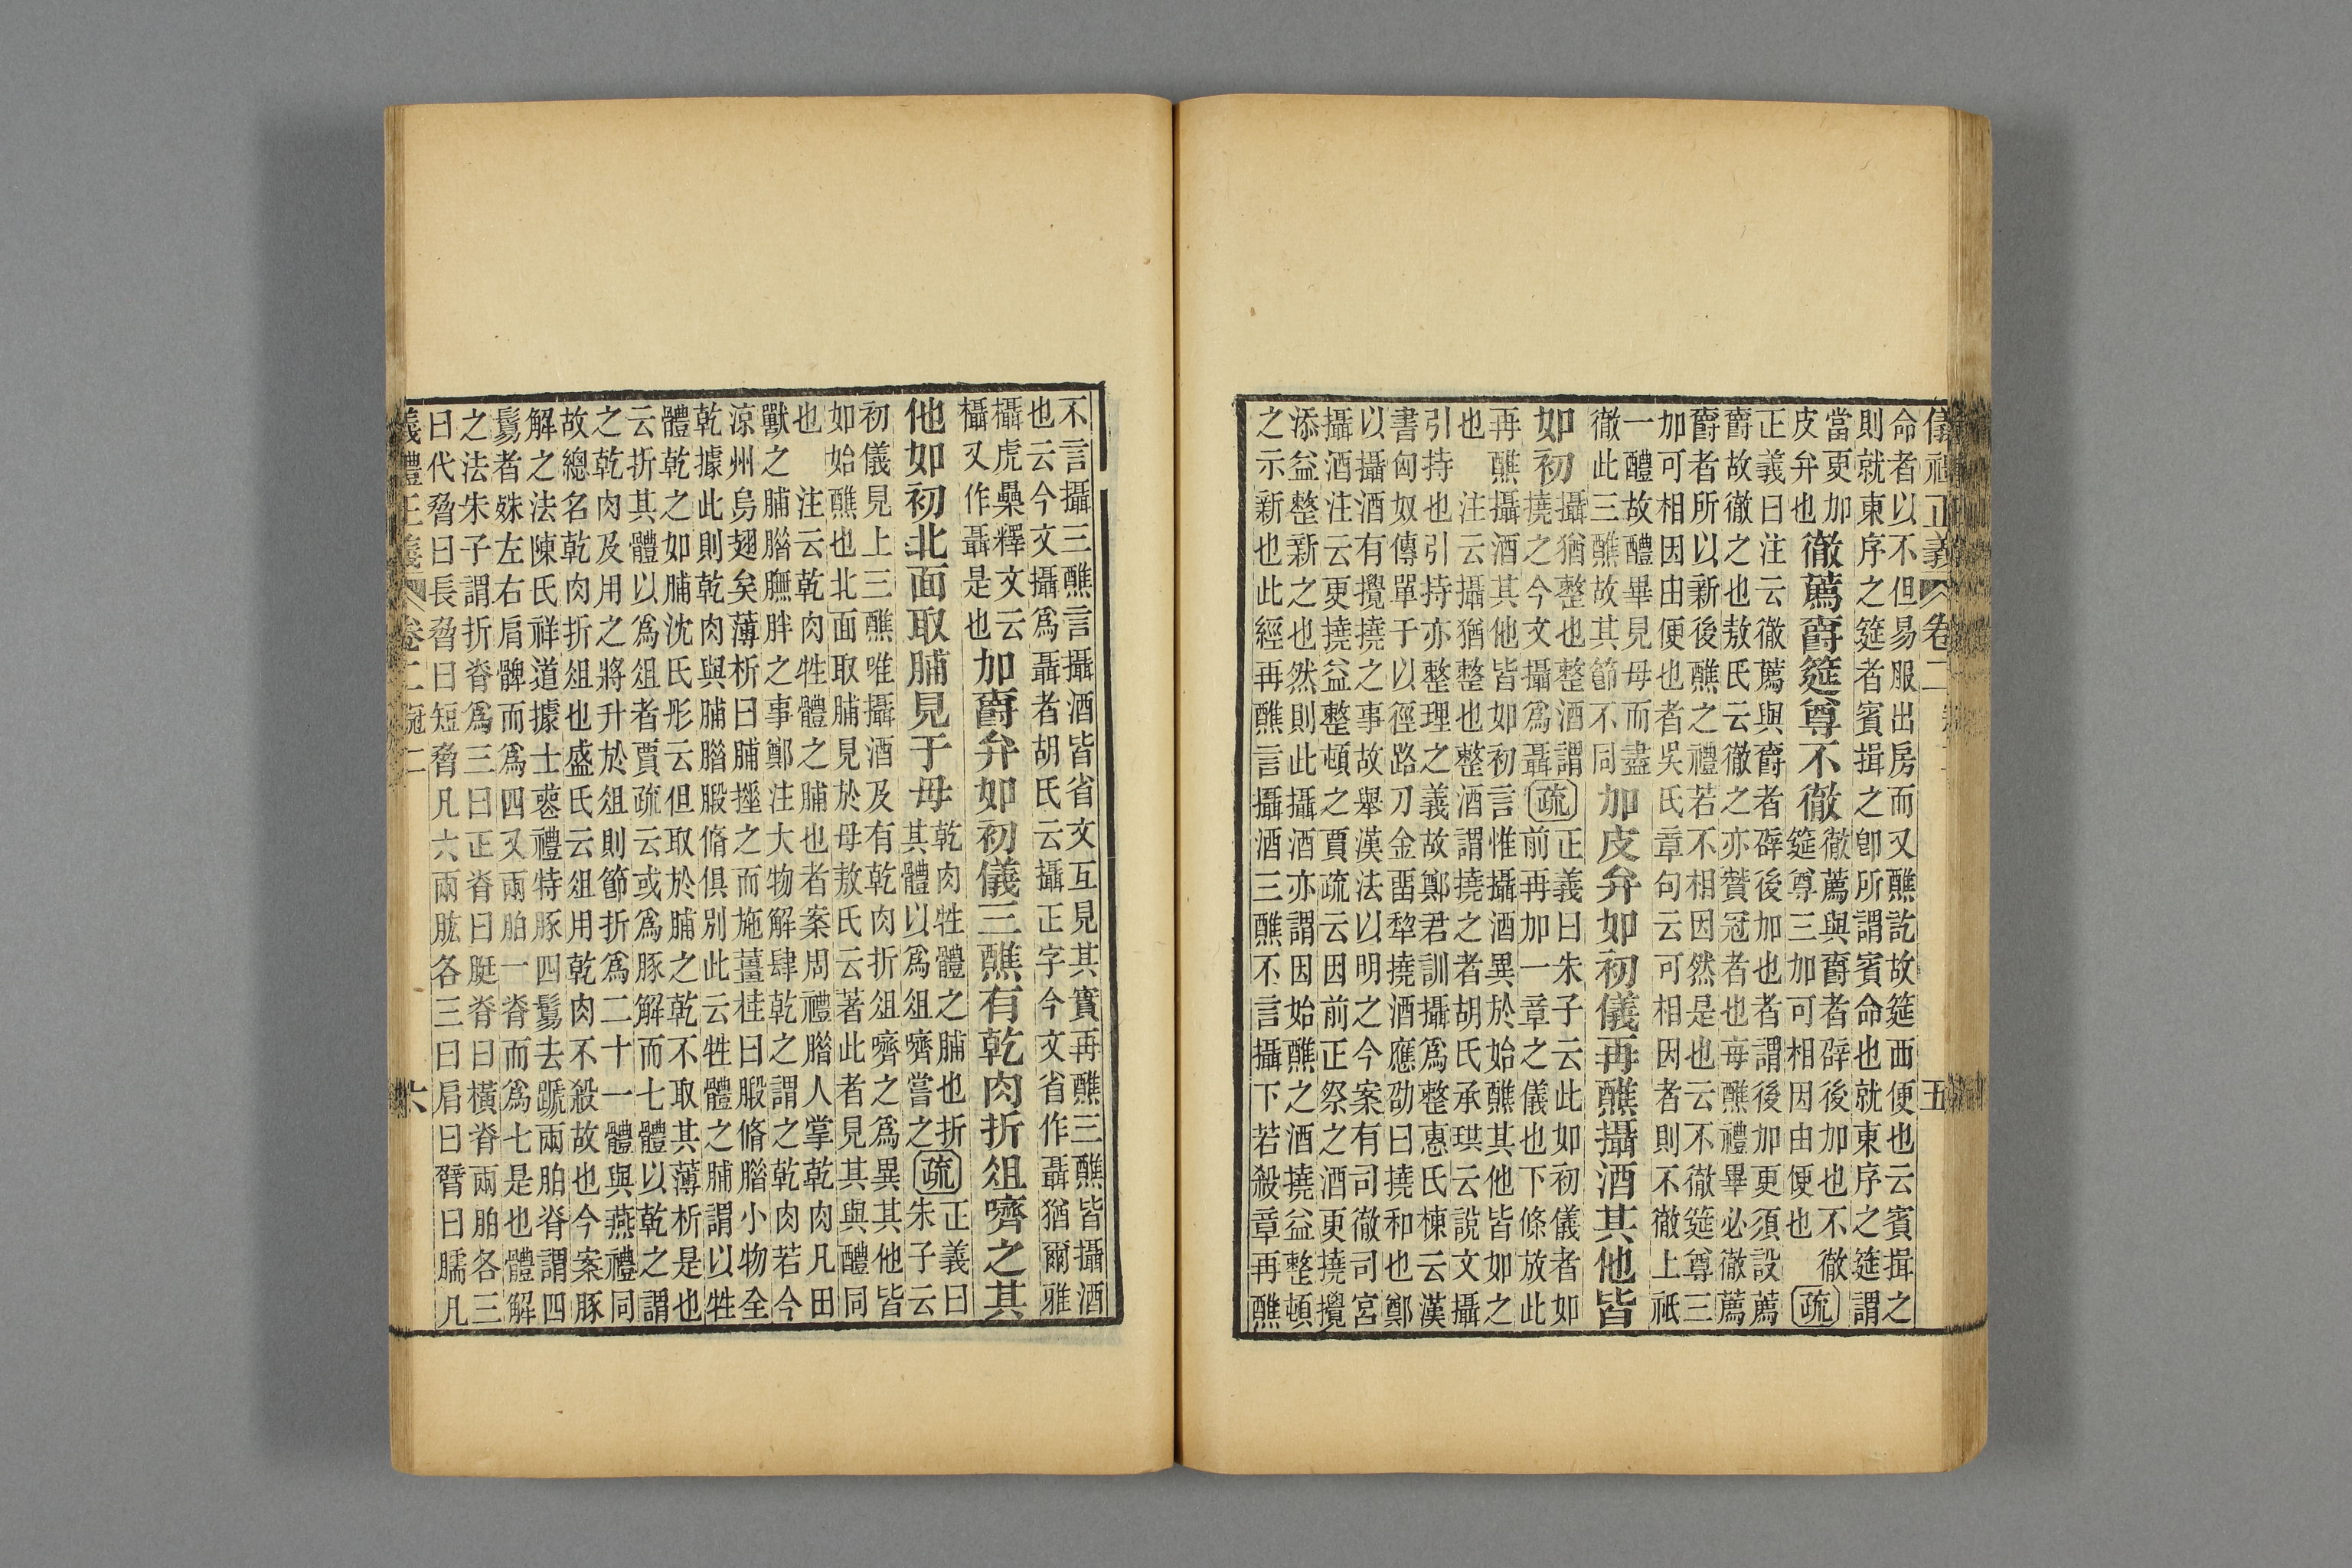 儀禮正義 卷二 五
命者以不但易服出房而又醮訖故筵西便也云賓揖之
則就東序之筵者賓揖之卽所謂賓命也就東序之筵謂
當更加
皮弁也
徹薦爵筵尊不徹
徹薦與爵者辟後加也不徹
筵尊三加可相因由便也
疏
正義曰注云徹薦與爵者辟後加也者謂後加更須設薦
爵故徹之也敖氏云徹之亦贊冠者也每醮禮畢必徹薦
爵者所以新後醮之禮若不相因然是也云不徹筵尊三
加可相因由便也者吳氏章句云可相因者則不徹上祇
一醴故醴畢見母而盡
徹此三醮故其節不同
加皮弁如初儀再醮攝酒其他皆
如初
攝猶整也整酒謂
撓之今文攝爲聶
疏
正義曰朱子云此如初儀者如
前再加一章之儀也下條放此
再醮攝酒其他皆如初言惟攝酒異於始醮其他皆如之
也 注云攝猶整也整酒謂撓之者胡氏承珙云說文攝
引持也引持亦整理之義故鄭君訓攝爲整惠氏棟云漢
書匈奴傳單于以徑路刀金留犂撓酒應劭曰撓和也鄭
以攝酒有攪撓之事故舉漢法以明之今案有司徹司宮
攝酒注云更撓益整頓之賈疏云因前正祭之酒更撓攪
添益整新之也然則此攝酒亦謂因始醮之酒撓益整頓
之示新也此經再醮言攝酒三醮不言攝下若殺章再醮
不言攝三醮言攝酒皆省文互見其實再醮三醮皆攝酒
也云今文攝爲聶者胡氏云攝正字今文省作聶猶爾雅
攝虎櫐釋文云
欇又作聶是也
加爵弁如初儀三醮有乾肉折俎嚌之其
他如初北面取脯見于母
乾肉牲體之脯也折
其體以爲俎嚌嘗之
疏
正義曰
朱子云
初儀見上三醮唯攝酒及有乾肉折俎嚌之爲異其他皆
如始醮也北面取脯見於母敖氏云著此者見其與醴同
也 注云乾肉牲體之脯也者案周禮腊人掌乾肉凡田
獸之脯腊膴胖之事鄭注大物解肆乾之謂之乾肉若今
涼州烏翅矣薄析曰脯捶之而施薑桂曰腶脩腊小物全
乾據此則乾肉與脯腊腶脩俱別此云牲體之脯謂以牲
體乾之如脯沈氏彤云但取於脯之乾不取其薄析是也
云折其體以爲俎者賈疏云或爲豚解而七體以乾之謂
之乾肉及用之將升於俎則節折爲二十一體與燕禮同
故總名乾肉折俎也盛氏云俎用乾肉不殺故也今案豚
解之法陳氏祥道據士喪禮特豚四鬄去蹏兩胉脊謂四
鬄者殊左右肩髀而爲四又兩胉一脊而爲七是也體解
之法朱子謂折脊爲三曰正脊曰脡脊曰橫脊兩胉各三
曰代脅曰長脅曰短脅凡六兩肱各三曰肩曰臂曰臑凡
儀禮正義 卷二 六